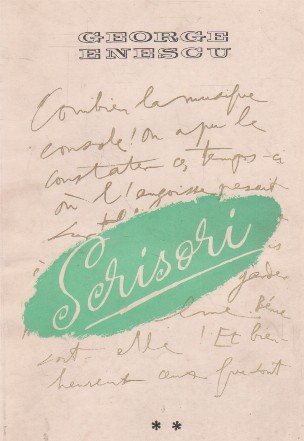 GEORGE
ENESCU
Combien la musique
console! On a pu le
constater ces temps-ci
où l'angoisse pesait
sur
Scrisori
garder
âme Bénie
soit elle! Et bien-
heureux ceux que sont
* *